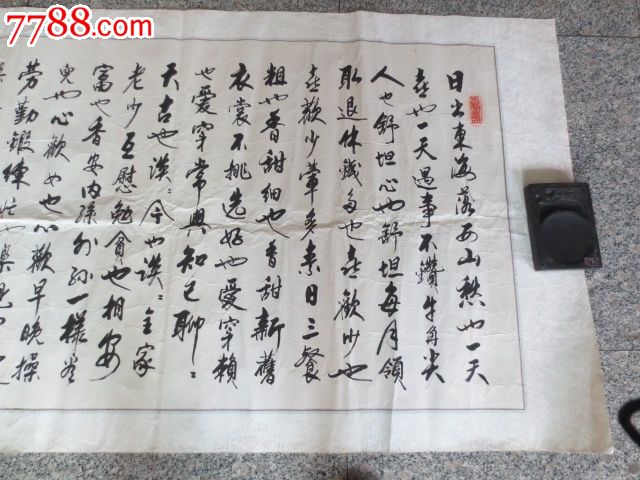 7788.com
日出東海落西山愁也一天
喜也一天遇事不鑽牛角尖
人也舒坦心也舒坦每月領
取退休錢多也喜歡少也
喜歡少葷多素日三餐
粗也香甜細也香甜新舊
衣裳不挑选好也愛穿賴
也愛穿常與知己聊〻
天古也談〻今也談〻全家
老少互慰勉貧也相安
富也香安内孫外孫一樣看
兒也心歡女也心歡早晚操
劳勤鍛練